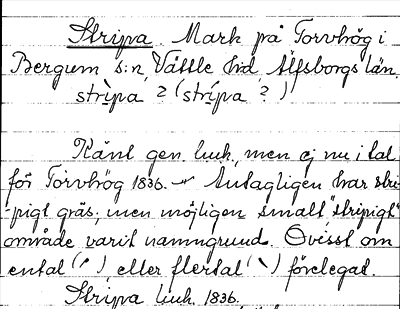 Stripa. Mark på Torvhög i
Bergum s:n, Vättle hd, Älfsborgs län.
strìpa ? (strípa ?)
Känt gen. luuk., men ej nu i tal
för Torvhög 1836. – Antagligen har stri-
-pigt gräs, men möjligen smalt, "stripigt"
område varit namngrund. Ovisst om
ental (´), eller flertal (`) förelegat.
Stripa luuk. 1836.